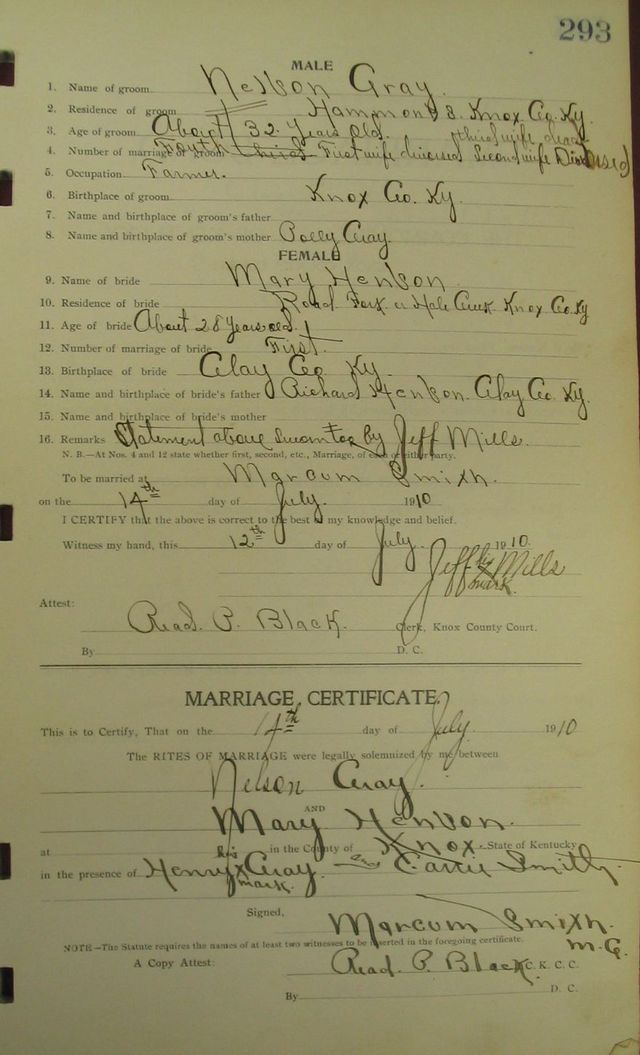 293
MALE
1. Name of groom Nelson Gray.
2. Residence of groom Hammond's. Knox Co. Ky.
3. Age of groom About 32 Years old. third wife
4. Number of marriage of groom Fourth Third First wife divorced Second wife Divorsed
5. Occupation Farmer.
6. Birthplace of groom Knox Co. Ky.
7. Name and birthplace of groom's father
8. Name and birthplace of groom's mother Polly Gray.
FEMALE
9. Name of bride Mary Henson.
10. Residence of bride Road Fork Creek Knox Co. Ky
11. Age of bride About 28 Years old.
12. Number of marriage of bride First.
13. Birthplace of bride Clay Co Ky.
14. Name and birthplace of bride's father Richard Henson. Clay Co. Ky.
15. Name and birthplace of bride's mother
16. Remarks Statement above sworn to by Jeff Mills.
N. B.—At Nos. 4 and 12 state whether first, second, etc., Marriage, of each or either party.
To be married at Marcum Smith.
on the 14th day of July. 1910
I CERTIFY that the above is correct to the best of my knowledge and belief.
Witness my hand, this 12th day of July. 1910.
Jeff his x mark. Mills
Attest:
Read. P. Black. Clerk, Knox County Court.
By D. C.
MARRIAGE CERTIFICATE.
This is to Certify, That on the 14th day of July. 1910
The RITES OF MARRIAGE were legally solemnized by me between
Nelson Gray.
AND
Mary Henson.
at in the County of Knox State of Kentucky
in the presence of Henry his x mark. Gray and Carrie Smith.
Signed,
Marcum Smith.
M. G.
NOTE—The Statute requires the names of at least two witnesses to be inserted in the foregoing certificate.
A Copy Attest: Read. P. Black C. K. C. C.
By D. C.